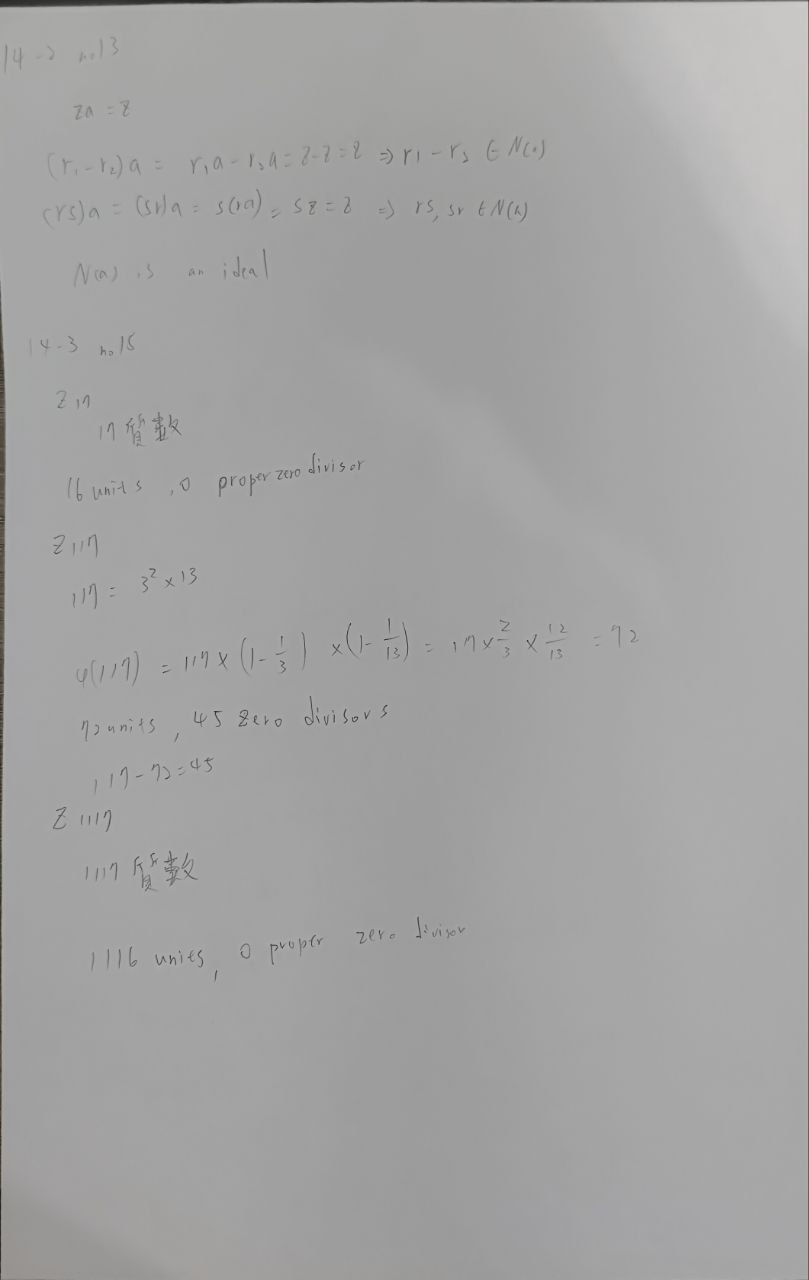 14-2 no13
za = z
(r₁-r₂)a = r₁a - r₂a = z-z = z ⇒ r₁-r₂ ∈ N(a)
(rs)a = (sr)a = s(ra) = sz = z ⇒ rs, sr ∈ N(a)
N(a) is an ideal
14-3 no15
Z 17
17 質數
16 units, 0 proper zero divisor
Z 117
117 = 3² × 13
φ(117) = 117 × (1-1/3) × (1-1/13) = 117 × 2/3 × 12/13 = 72
72 units, 45 zero divisors
117-72=45
Z 1117
1117 質數
1116 units, 0 proper zero divisor